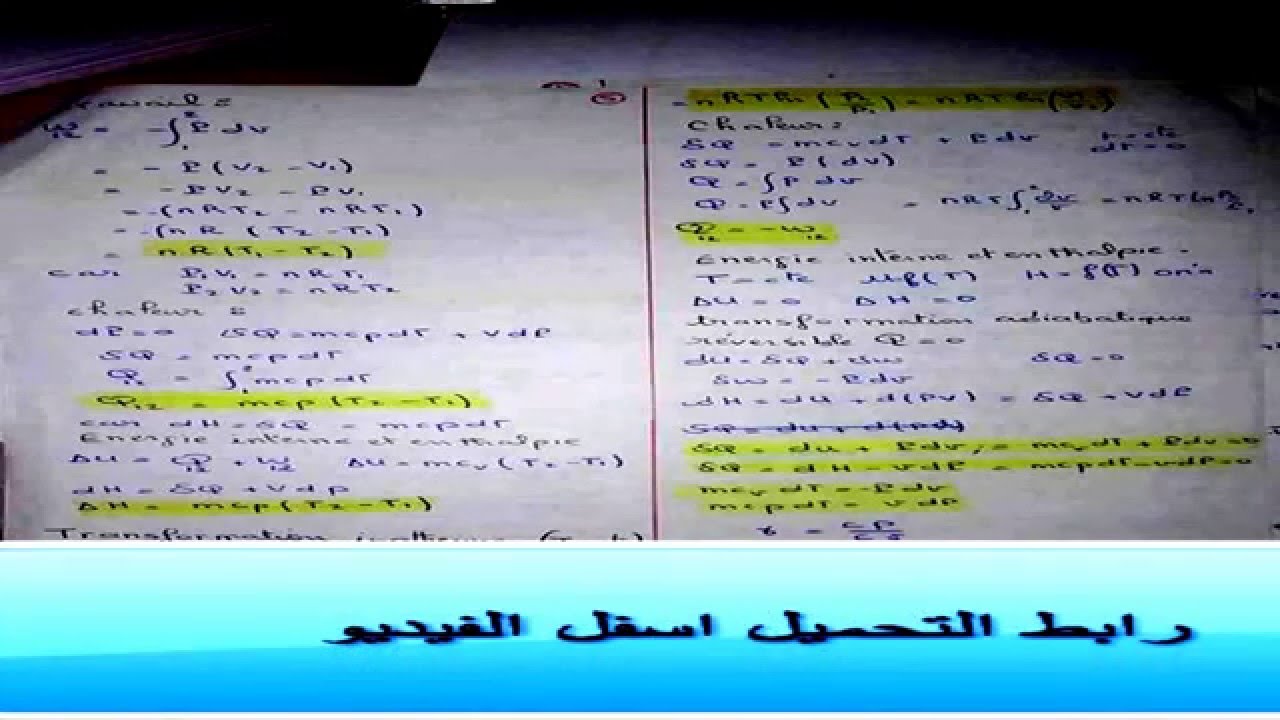 Travail :
W12 = -∫₁² P dv
= - P (V2 - V1)
= - PV2 - PV1
= -(nRT2 - nRT1)
= -(nR (T2 - T1)
= nR(T1 - T2)
car P1V1 = nRT1
P2V2 = nRT2
chaleur :
dP=0 δQ=mcpdT + VdP
δQ = mcpdT
Q12 = ∫₁² mcpdT
Q12 = mcp(T2-T1)
car dH = δQ = mcpdT
Energie interne et enthalpie
ΔU = Q12 + W12 ΔU=mcv(T2-T1)
dH = δQ + Vdp
ΔH = mcp(T2-T1)
Transformation isotherme
1
chaleur :
δQ = mcvdT + Pdv T=cte
dT=0
δQ = P(dv)
Q = ∫P dv
Q = P∫dv = nRT∫
Q12 = -W12
Energie interne et enthalpie.
T=cte H=f(T)
ΔU=0 ΔH=0
transformation adiabatique
réversible Q=0
dU=δQ+δw δQ=0
δw=-Pdv
dH = dU + d(PV) = δQ+VdP
δQ = du + Pdv, = mcvdT + Pdv=0
δQ = dH - VdP = mcpdT-vdP=0
mcv dT=-Pdv
mcpdT= vdP
γ = cp
رابط التحميل اسفل الفيديو